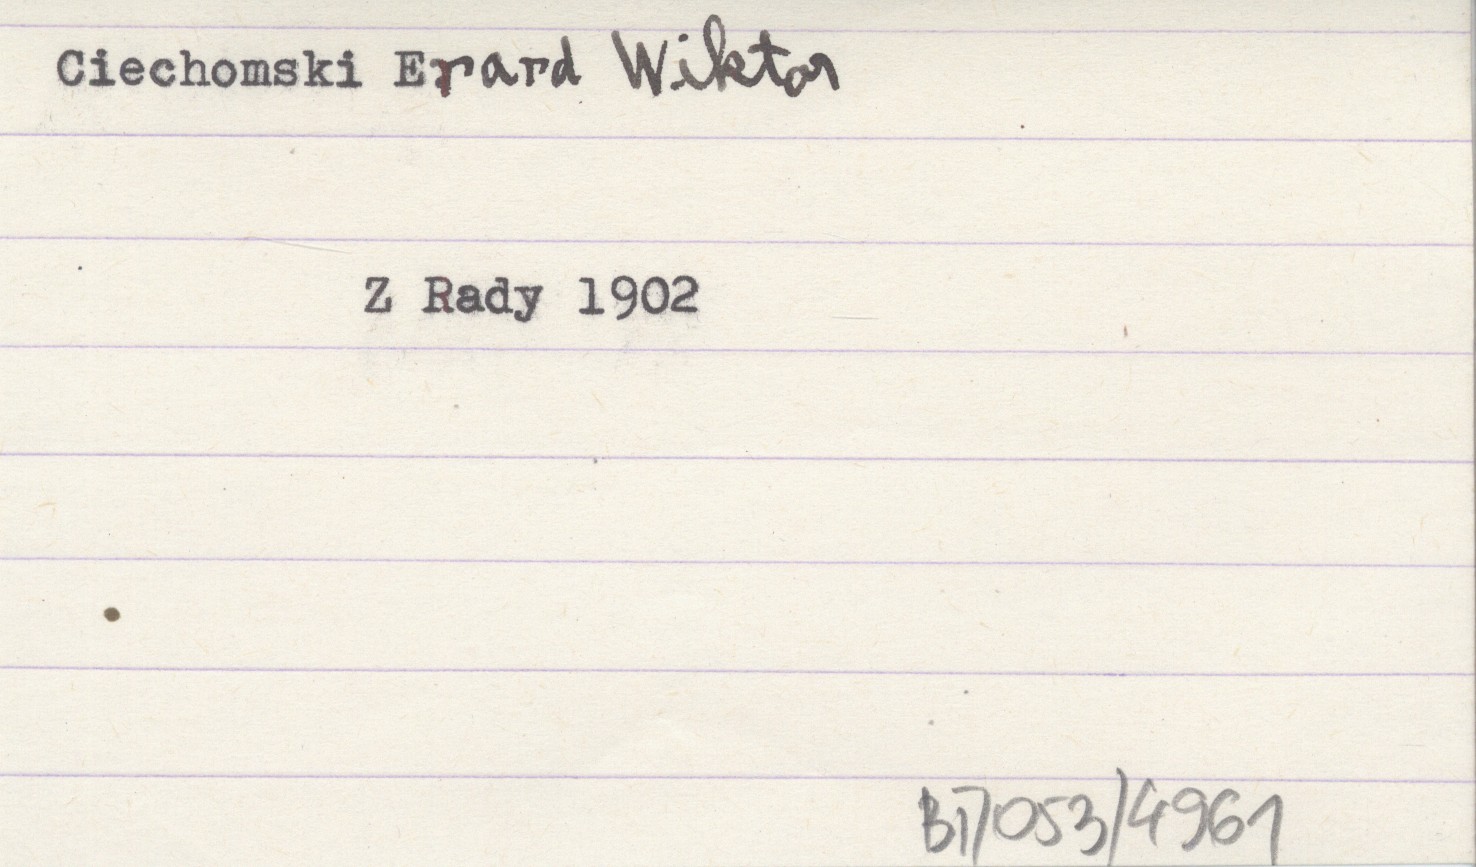 Ciechomski Erard Wiktor
Z Rady 1902
BI/053/4961